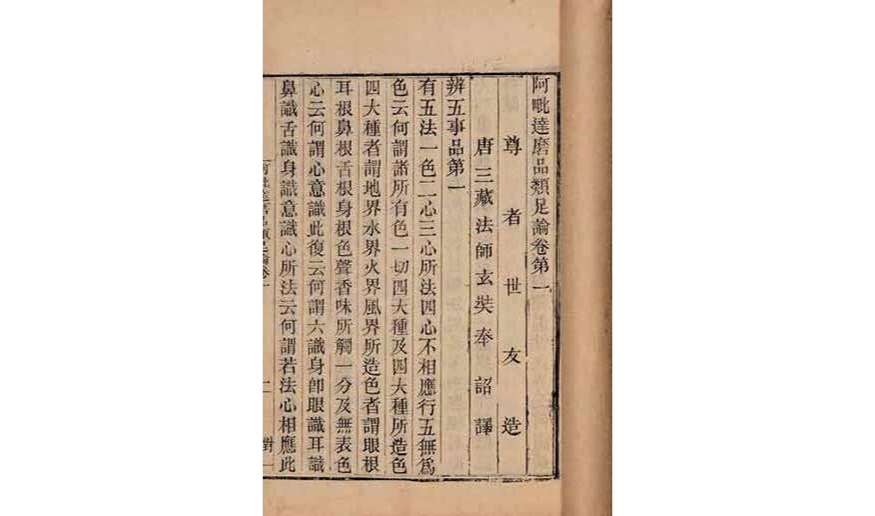 阿毗達磨品類足論卷第一
尊者世友造
唐三藏法師玄奘奉詔譯
辨五事品第一
有五法一色二心三心所法四心不相應行五無為
色云何謂諸所有色一切四大種及四大種所造色
四大種者謂地界水界火界風界所造色者謂眼根
耳根鼻根舌根身根色聲香味所觸一分及無表色
心云何謂心意識此復云何謂六識身卽眼識耳識
鼻識舌識身識意識心所法云何謂若法心相應此
二
對一